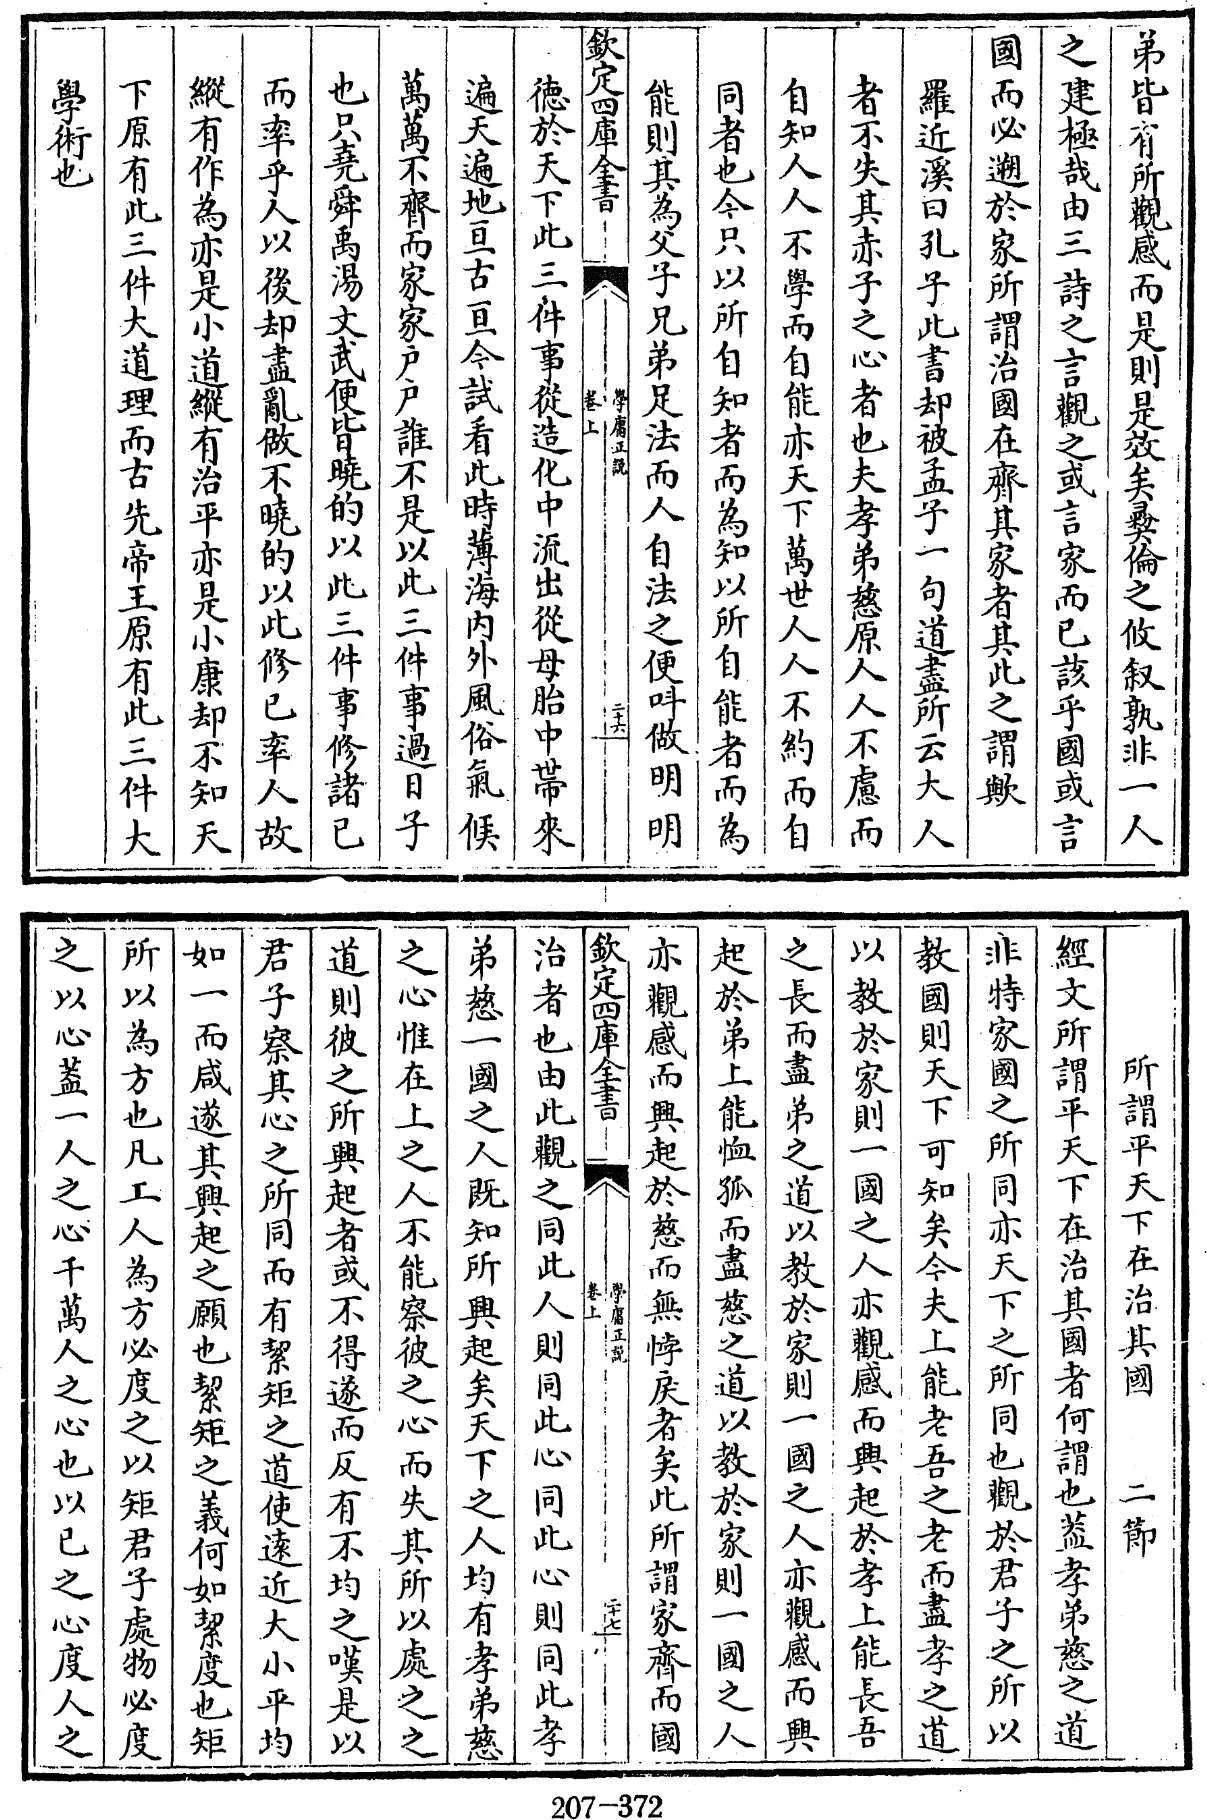 弟皆有所觀感而是則是效矣彛倫之攸叙孰非一人
之建極哉由三詩之言觀之或言家而已該乎國或言
國而必遡於家所謂治國在齊其家者其此之謂歟
羅近溪曰孔子此書却被孟子一句道盡所云大人
者不失其赤子之心者也夫孝弟慈原人人不慮而
自知人人不學而自能亦天下萬世人人不約而自
同者也今只以所自知者而為知以所自能者而為
能則其為父子兄弟足法而人自法之便呌做明明
欽定四庫全書
學庸正說
卷上
二十六
德於天下此三件事從造化中流出從母胎中帶來
遍天遍地亘古亘今試看此時薄海內外風俗氣候
萬萬不齊而家家户户誰不是以此三件事過日子
也只堯舜禹湯文武便皆曉的以此三件事修諸已
而率乎人以後却盡亂做不曉的以此修已率人故
縱有作為亦是小道縱有治平亦是小康却不知天
下原有此三件大道理而古先帝王原有此三件大
學術也
所謂平天下在治其國 二節
經文所謂平天下在治其國者何謂也葢孝弟慈之道
非特家國之所同亦天下之所同也觀於君子之所以
教國則天下可知矣今夫上能老吾之老而盡孝之道
以教於家則一國之人亦觀感而興起於孝上能長吾
之長而盡弟之道以教於家則一國之人亦觀感而興
起於弟上能恤孤而盡慈之道以教於家則一國之人
亦觀感而興起於慈而無悖戾者矣此所謂家齊而國
欽定四庫全書
學庸正說
卷上
二十七
治者也由此觀之同此人則同此心同此心則同此孝
弟慈一國之人既知所興起矣天下之人均有孝弟慈
之心惟在上之人不能察彼之心而失其所以處之之
道則彼之所興起者或不得遂而反有不均之嘆是以
君子察其心之所同而有絜矩之道使遠近大小平均
如一而咸遂其興起之願也絜矩之義何如絜度也矩
所以為方也凡工人為方必度之以矩君子處物必度
之以心葢一人之心千萬人之心也以已之心度人之
207-372